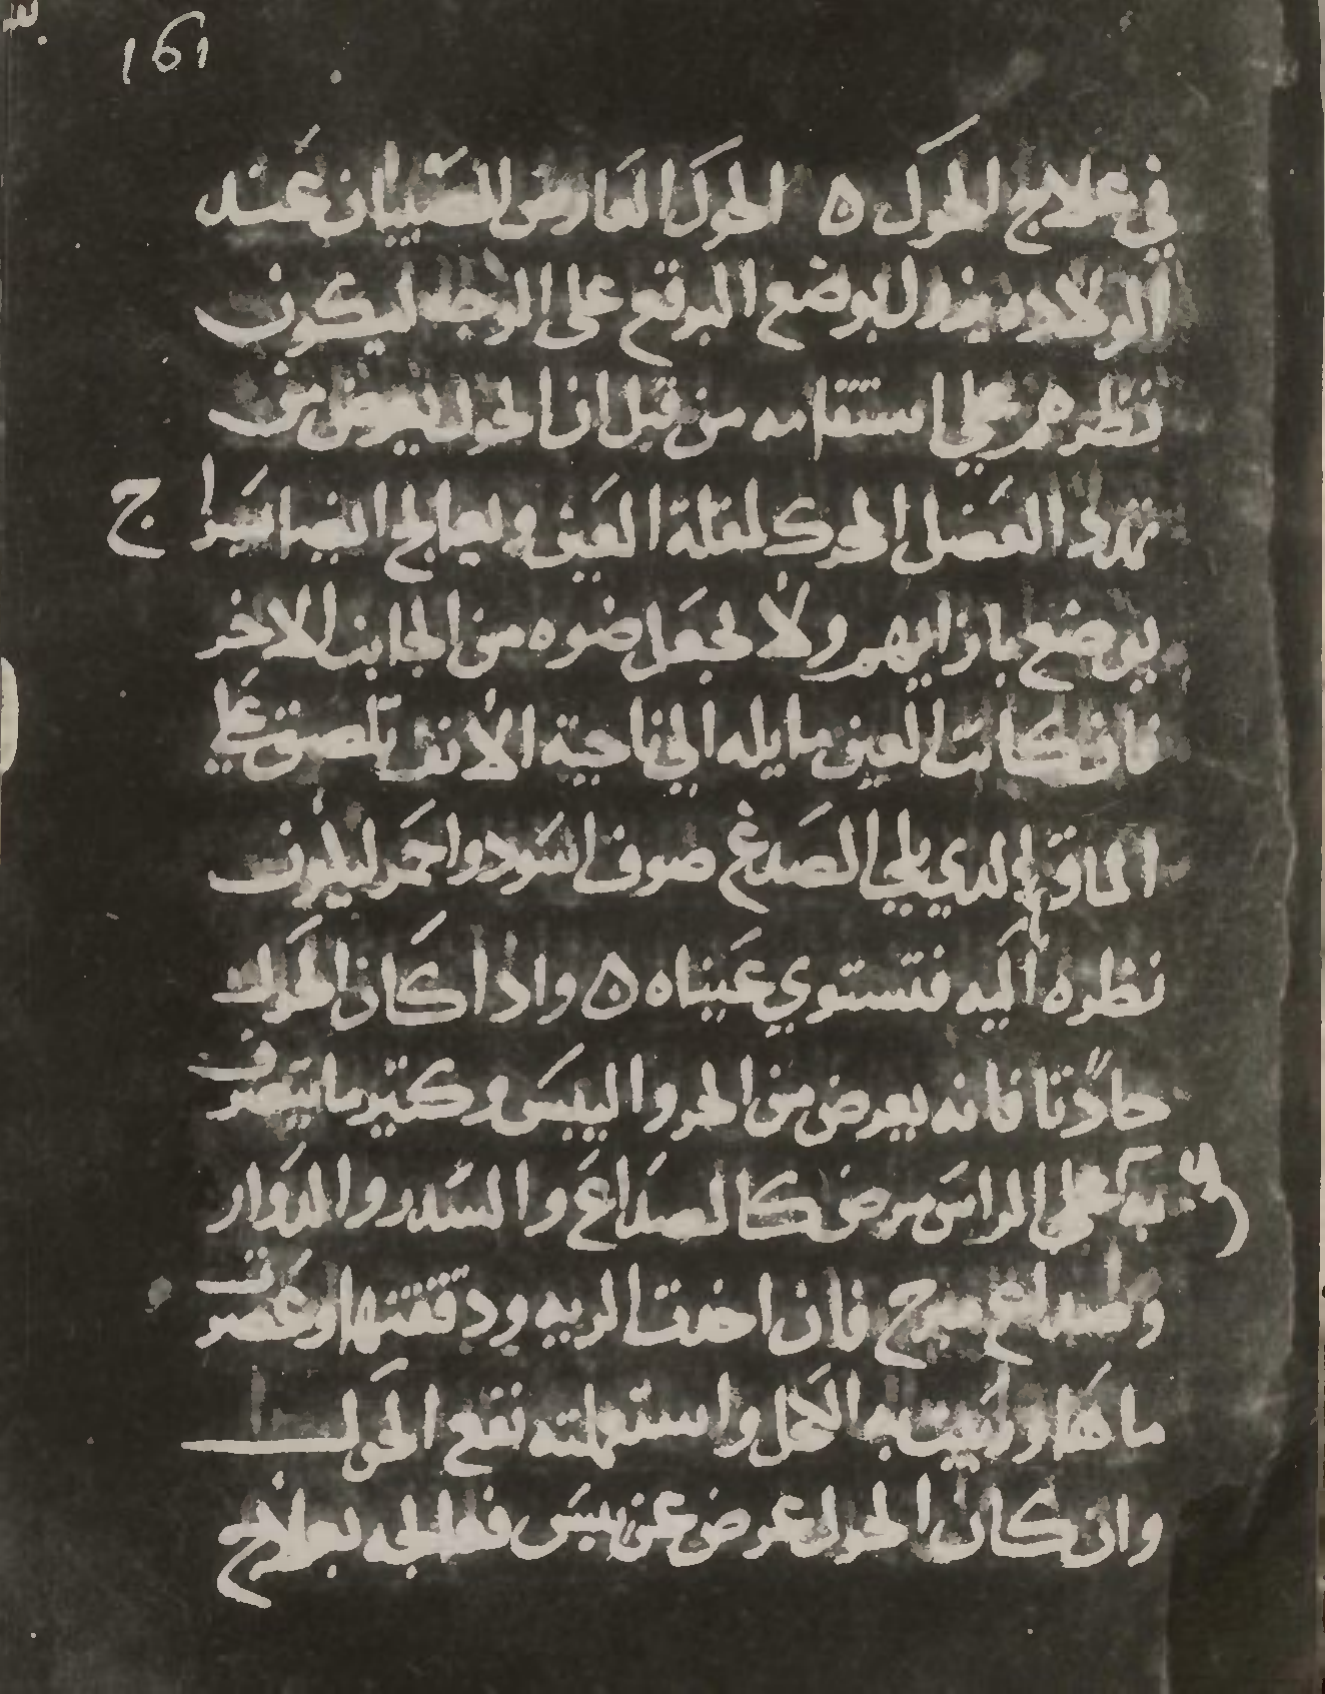 161
في علاج الحول ٥ الحول العارض للصبيان عند
الولاد يزول بوضع البرقع على الوجه ليكون
نظرهم على استقامه من قبل ان الحول يعرض من
تمدد العضل المحرك لمقلة العين ويعالج ايضا بسراج
يوضع بازايهم ولا يجعل ضوه من الجانب الاخر
فان كانت العين مايله الي ناحية الانف يلصق علي
الماق الدي يلي الصدغ صوف اسود واحمر ليكون
نظره اليه فتستوي عيناه ٥ وادا كان الحول
حادتا فانه يعرض من الحر واليبس وكتير ما يتصرف
به علي الراس مرض كالصداع والسدر والدوار
وصداع مبرح فان اخدت الريه ودققتها وعصرت
ماها وديف به الكحل واستعملته نفع الحول
وان كان الحول عرض عن يبس فعالجه بعلاج